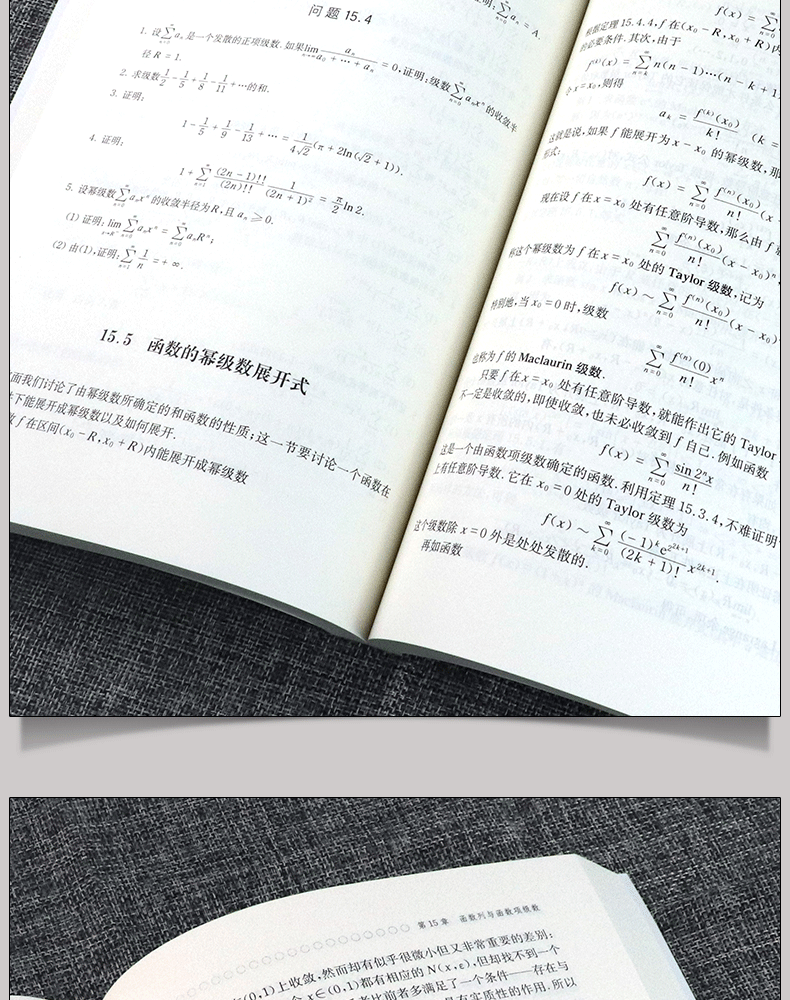 证明: $\sum_{n=0}^{\infty} a_n = A$.
问题 15.4
1. 设 $\sum_{n=0}^{\infty} a_n$ 是一个发散的正项级数. 如果 $\lim_{n\to\infty} \frac{a_n}{a_0+\cdots+a_n} = 0$, 证明: 级数 $\sum_{n=0}^{\infty} a_n x^n$ 的收敛半
径 R = 1.
2. 求级数 $\frac{1}{2} - \frac{1}{5} + \frac{1}{8} - \frac{1}{11} + \cdots$ 的和.
3. 证明:
$1 - \frac{1}{5} + \frac{1}{9} - \frac{1}{13} + \cdots = \frac{1}{4\sqrt{2}}(\pi + 2\ln(\sqrt{2}+1))$.
4. 证明:
$1 + \sum_{n=1}^{\infty} \frac{(2n-1)!!}{(2n)!!} \frac{1}{(2n+1)^2} = \frac{\pi}{2}\ln 2$.
5. 设幂级数 $\sum_{n=0}^{\infty} a_n x^n$ 的收敛半径为 R, 且 $a_n \geqslant 0$.
(1) 证明: $\lim_{x\to R^-} \sum_{n=0}^{\infty} a_n x^n = \sum_{n=0}^{\infty} a_n R^n$;
(2) 由(1), 证明: $\sum_{n=1}^{\infty} \frac{1}{n} = +\infty$.
15.5 函数的幂级数展开式
面我们讨论了由幂级数所确定的和函数的性质; 这一节要讨论一个函数在
下能展开成幂级数以及如何展开.
f 在区间 $(x_0-R, x_0+R)$ 内能展开成幂级数
$f(x) = \sum_{n=0}^{\infty}$
根据定理 15.4.4, f 在 $(x_0-R, x_0+R)$ 内
的必要条件. 其次, 由于
$f^{(k)}(x) = \sum_{n=k}^{\infty} n(n-1)\cdots(n-k+1)$
令 $x = x_0$, 则得
$a_k = \frac{f^{(k)}(x_0)}{k!}$ (k =
这就是说, 如果 f 能展开为 $x-x_0$ 的幂级数, 那
形式:
$f(x) = \sum_{n=0}^{\infty} \frac{f^{(n)}(x_0)}{n!}(x-$
现在设 f 在 $x=x_0$ 处有任意阶导数, 那么由 f
$\sum_{n=0}^{\infty} \frac{f^{(n)}(x_0)}{n!}(x-x_0)^n$,
称这个幂级数为 f 在 $x=x_0$ 处的 Taylor 级数, 记为
$f(x) \sim \sum_{n=0}^{\infty} \frac{f^{(n)}(x_0)}{n!}(x-x_0)$
特别地, 当 $x_0=0$ 时, 级数
$\sum_{n=0}^{\infty} \frac{f^{(n)}(0)}{n!}x^n$
也称为 f 的 Maclaurin 级数.
只要 f 在 $x=x_0$ 处有任意阶导数, 就能作出它的 Taylor
不一定是收敛的, 即使收敛, 也未必收敛到 f 自己. 例如函数
$f(x) = \sum_{n=0}^{\infty} \frac{\sin 2^n x}{n!}$
这是一个由函数项级数确定的函数. 利用定理 15.3.4, 不难证明
上有任意阶导数. 它在 $x_0=0$ 处的 Taylor 级数为
$f(x) \sim \sum_{k=0}^{\infty} \frac{(-1)^k e^{2^{2k+1}}}{(2k+1)!}x^{2k+1}$.
这个级数除 x = 0 外是处处发散的.
再如函数
第 15 章 函数列与函数项级数
(0,1)上收敛, 然而却有似乎很微小但又非常重要的差别:
x∈(0,1)都有相应的 N(x,ε), 但却找不到一个
者比前者多满足了一个条件——存在与
具有实质性的作用. 所以